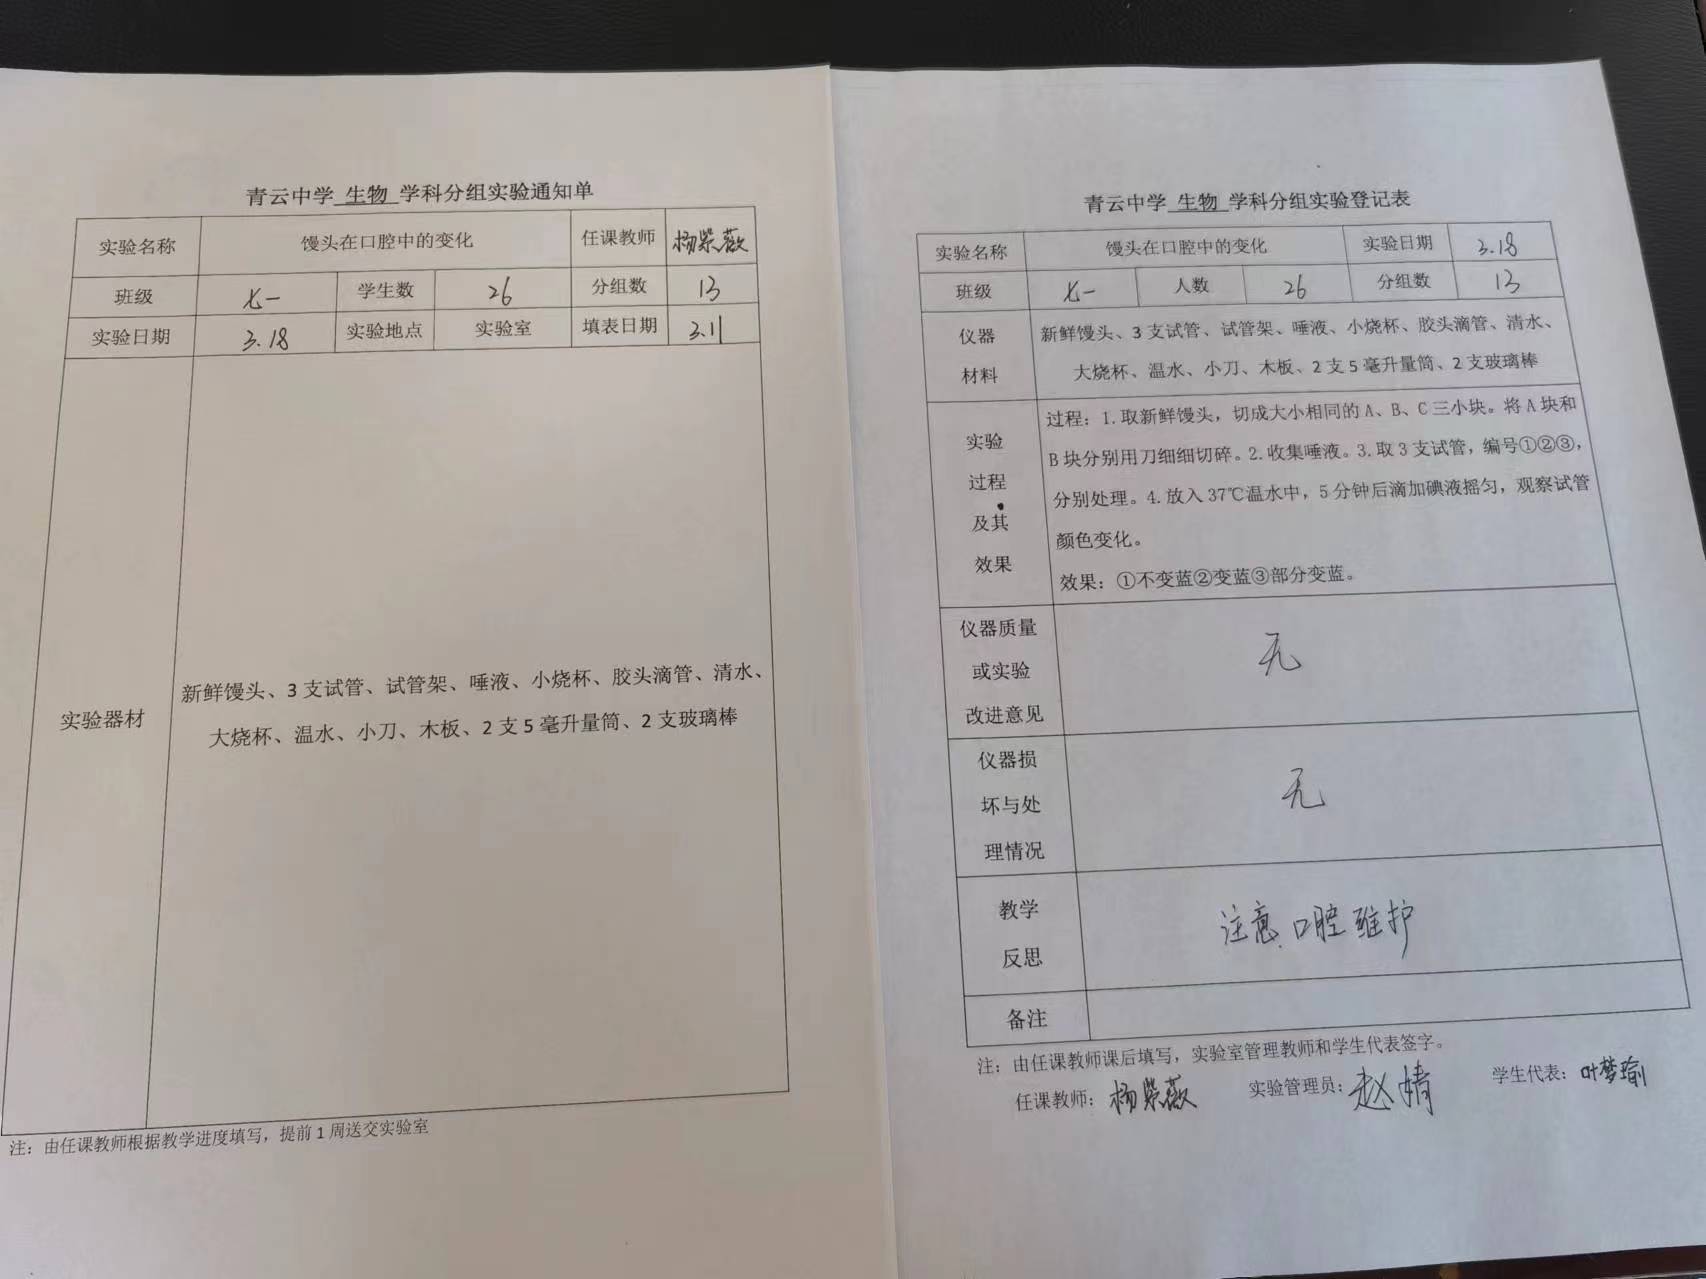 青云中学 生物 学科分组实验通知单
实验名称 馒头在口腔中的变化 任课教师 杨紫薇
班级 七一 学生数 26 分组数 13
实验日期 3.18 实验地点 实验室 填表日期 3.11
实验器材
新鲜馒头、3支试管、试管架、唾液、小烧杯、胶头滴管、清水、
大烧杯、温水、小刀、木板、2支5毫升量筒、2支玻璃棒
注：由任课教师根据教学进度填写，提前1周送交实验室
青云中学 生物 学科分组实验登记表
实验名称 馒头在口腔中的变化 实验日期 3.18
班级 七一 人数 26 分组数 13
仪器
材料
新鲜馒头、3支试管、试管架、唾液、小烧杯、胶头滴管、清水、
大烧杯、温水、小刀、木板、2支5毫升量筒、2支玻璃棒
实验
过程
及其
效果
过程：1.取新鲜馒头，切成大小相同的A、B、C三小块。将A块和
B块分别用刀细细切碎。2.收集唾液。3.取3支试管，编号①②③，
分别处理。4.放入37℃温水中，5分钟后滴加碘液摇匀，观察试管
颜色变化。
效果：①不变蓝②变蓝③部分变蓝。
仪器质量
或实验
改进意见
无
仪器损
坏与处
理情况
无
教学
反思
注意口腔维护
备注
注：由任课教师课后填写，实验室管理教师和学生代表签字。
任课教师：杨紫薇 实验管理员：赵婧 学生代表：叶梦瑜